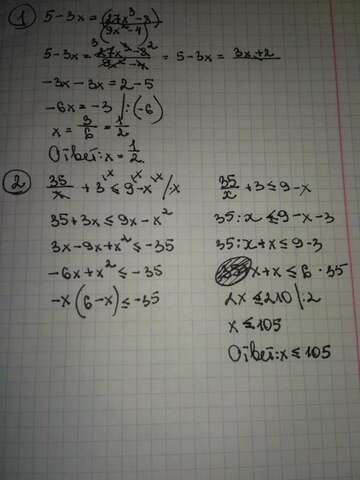 1 5-3x = (27x³-8)/(9x²-4)
5-3x = 27x³-8 / 9x²-4 = 5-3x = 3x+2
-3x-3x = 2-5
-6x = -3 |:(-6)
x = 3/6 = 1/2
Ответ: x = 1/2.
2 35/x + 3 ≤ 9-x /·x
35+3x ≤ 9x-x²
3x-9x+x² ≤ -35
-6x+x² ≤ -35
-x(6-x) ≤ -35
35/x +3 ≤ 9-x
35:x ≤ 9-x-3
35:x+x ≤ 9-3
x+x ≤ 6·35
2x ≤ 210 |:2
x ≤ 105
Ответ: x ≤ 105